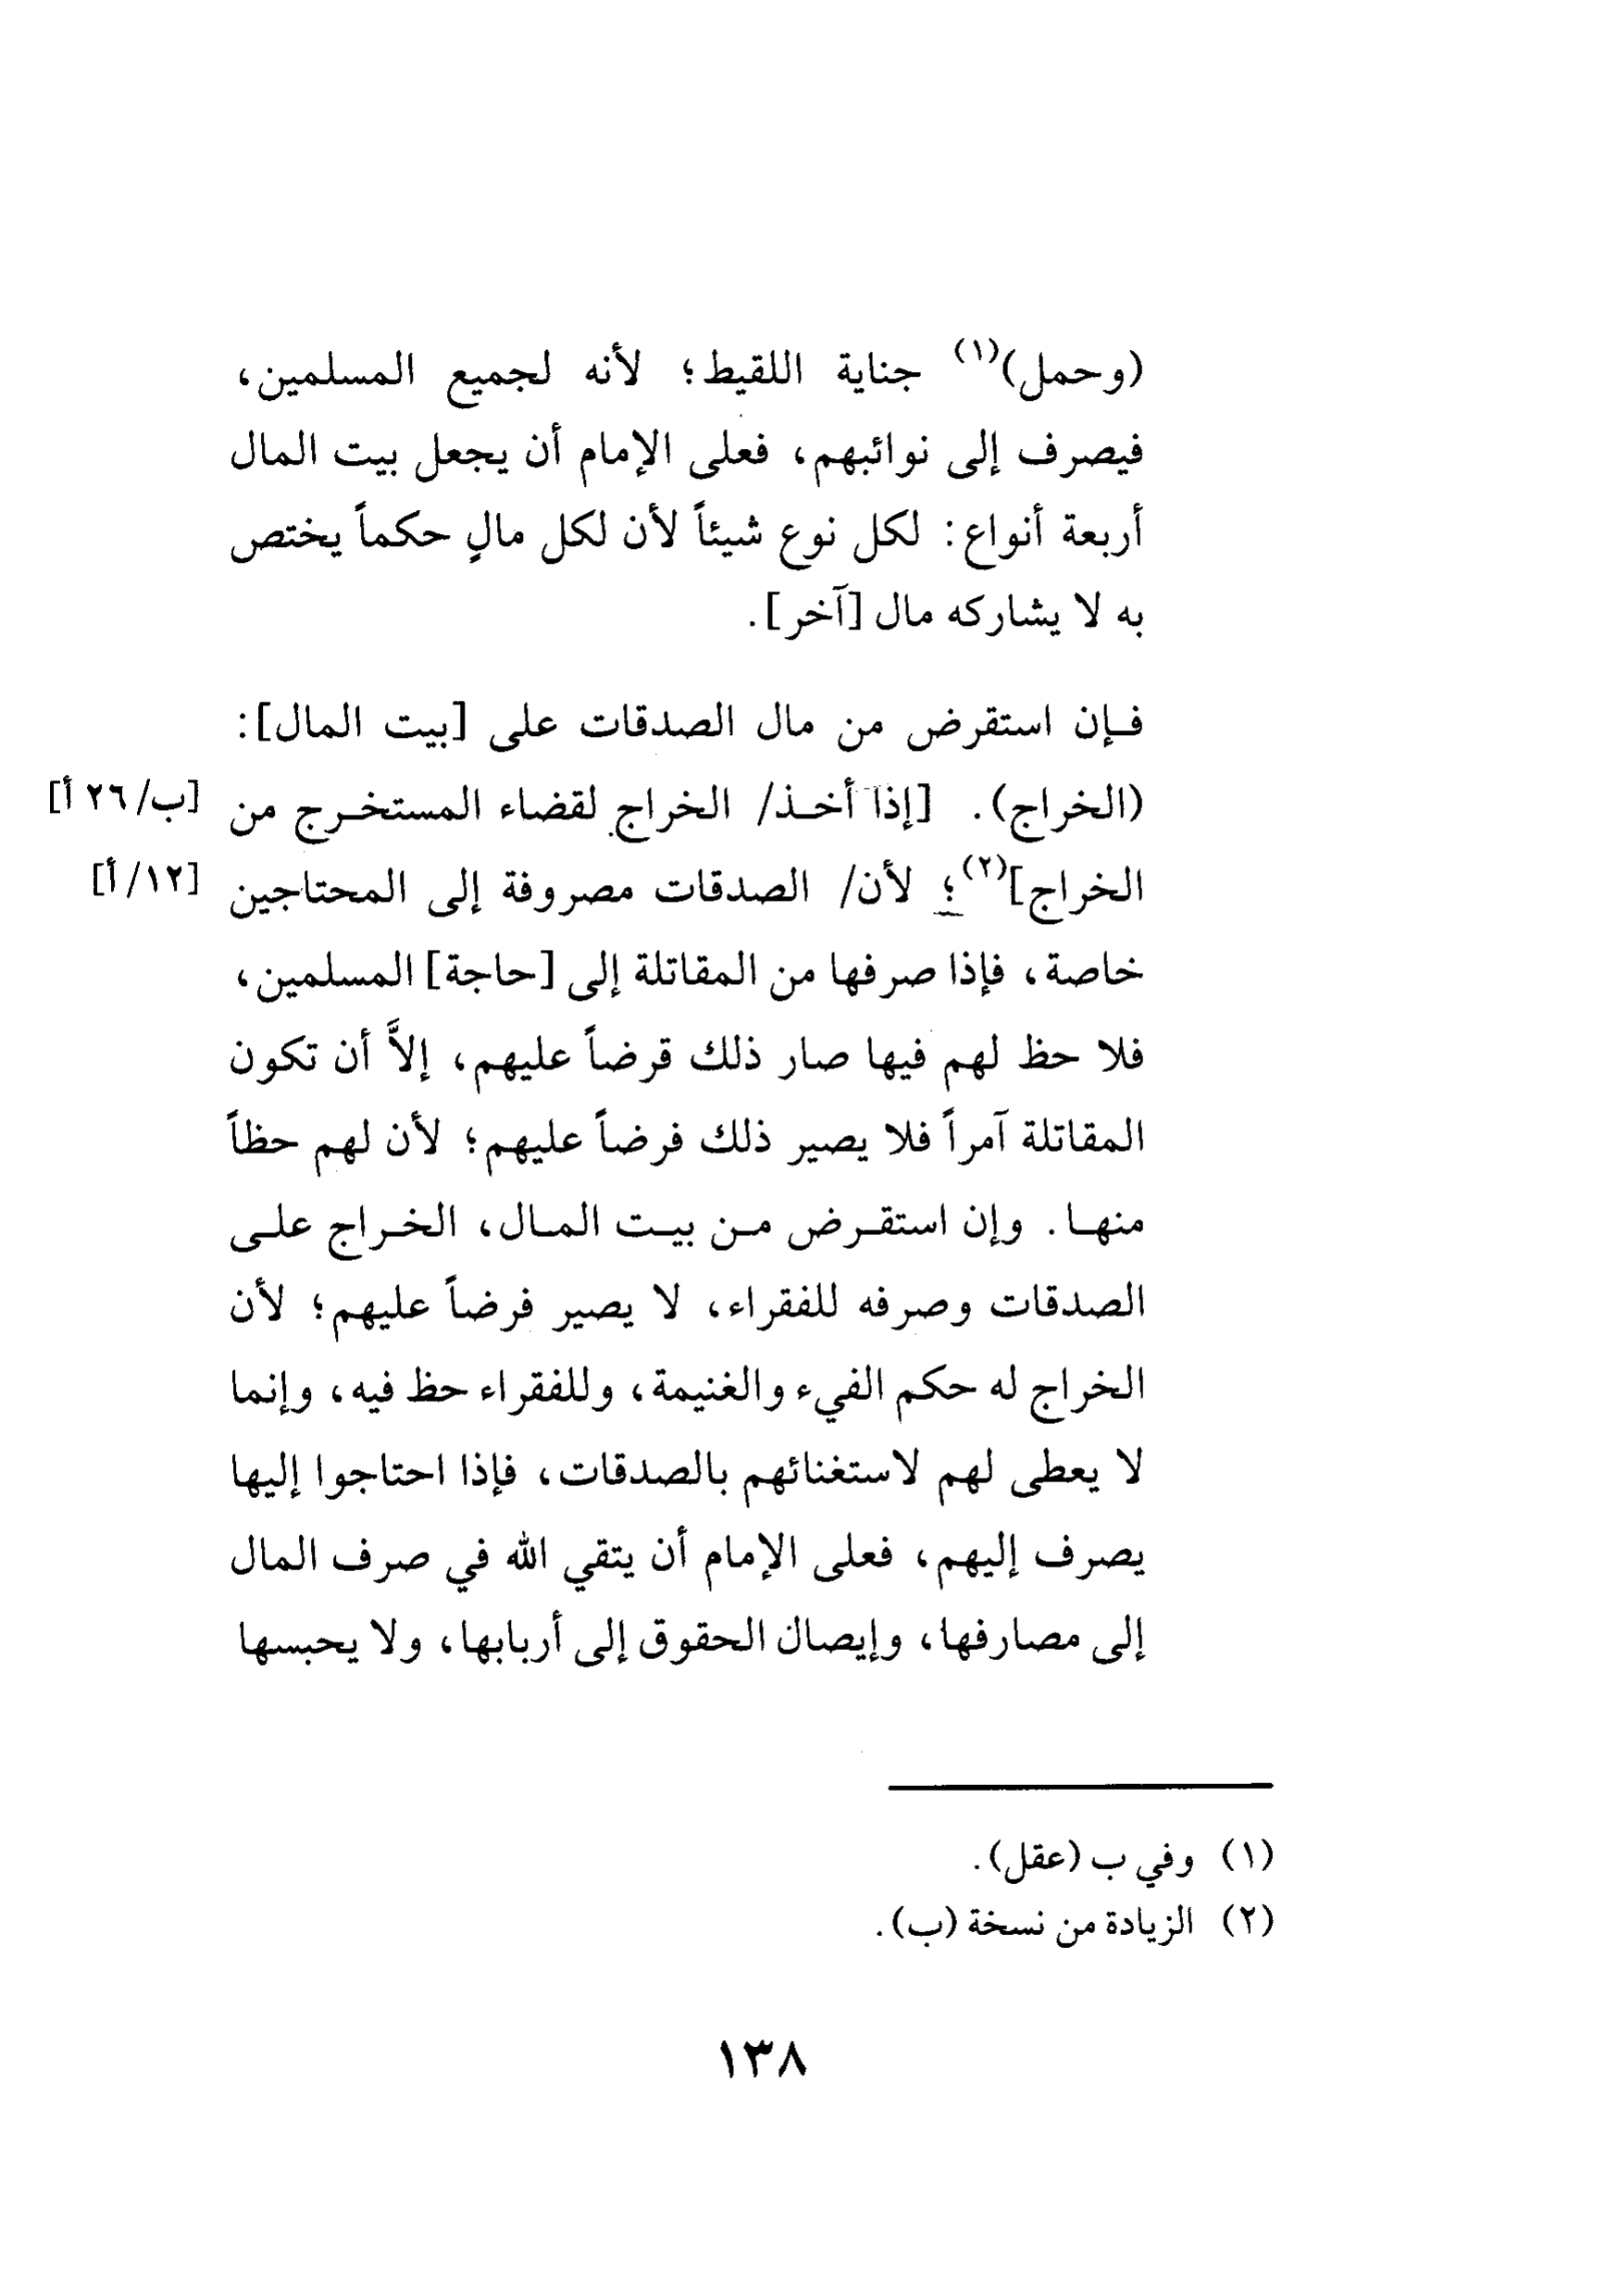 (وحمل)(١) جناية اللقيط؛ لأنه لجميع المسلمين،
فيصرف إلى نوائبهم، فعلى الإمام أن يجعل بيت المال
أربعة أنواع: لكل نوع شيئاً لأن لكل مالٍ حكماً يختص
به لا يشاركه مال [آخر].
فإن استقرض من مال الصدقات على [بيت المال]:
(الخراج). [إذا أخذ/ الخراج لقضاء المستخرج من [ب/٢٦ أ]
الخراج](٢)؛ لأن/ الصدقات مصروفة إلى المحتاجين [١٢/أ]
خاصة، فإذا صرفها من المقاتلة إلى [حاجة] المسلمين،
فلا حظ لهم فيها صار ذلك قرضاً عليهم، إلاَّ أن تكون
المقاتلة آمراً فلا يصير ذلك فرضاً عليهم؛ لأن لهم حظاً
منها. وإن استقرض من بيت المال، الخراج على
الصدقات وصرفه للفقراء، لا يصير فرضاً عليهم؛ لأن
الخراج له حكم الفيء والغنيمة، وللفقراء حظ فيه، وإنما
لا يعطى لهم لاستغنائهم بالصدقات، فإذا احتاجوا إليها
يصرف إليهم، فعلى الإمام أن يتقي الله في صرف المال
إلى مصارفها، وإيصال الحقوق إلى أربابها، ولا يحبسها
(١) وفي ب (عقل).
(٢) الزيادة من نسخة (ب).
١٣٨